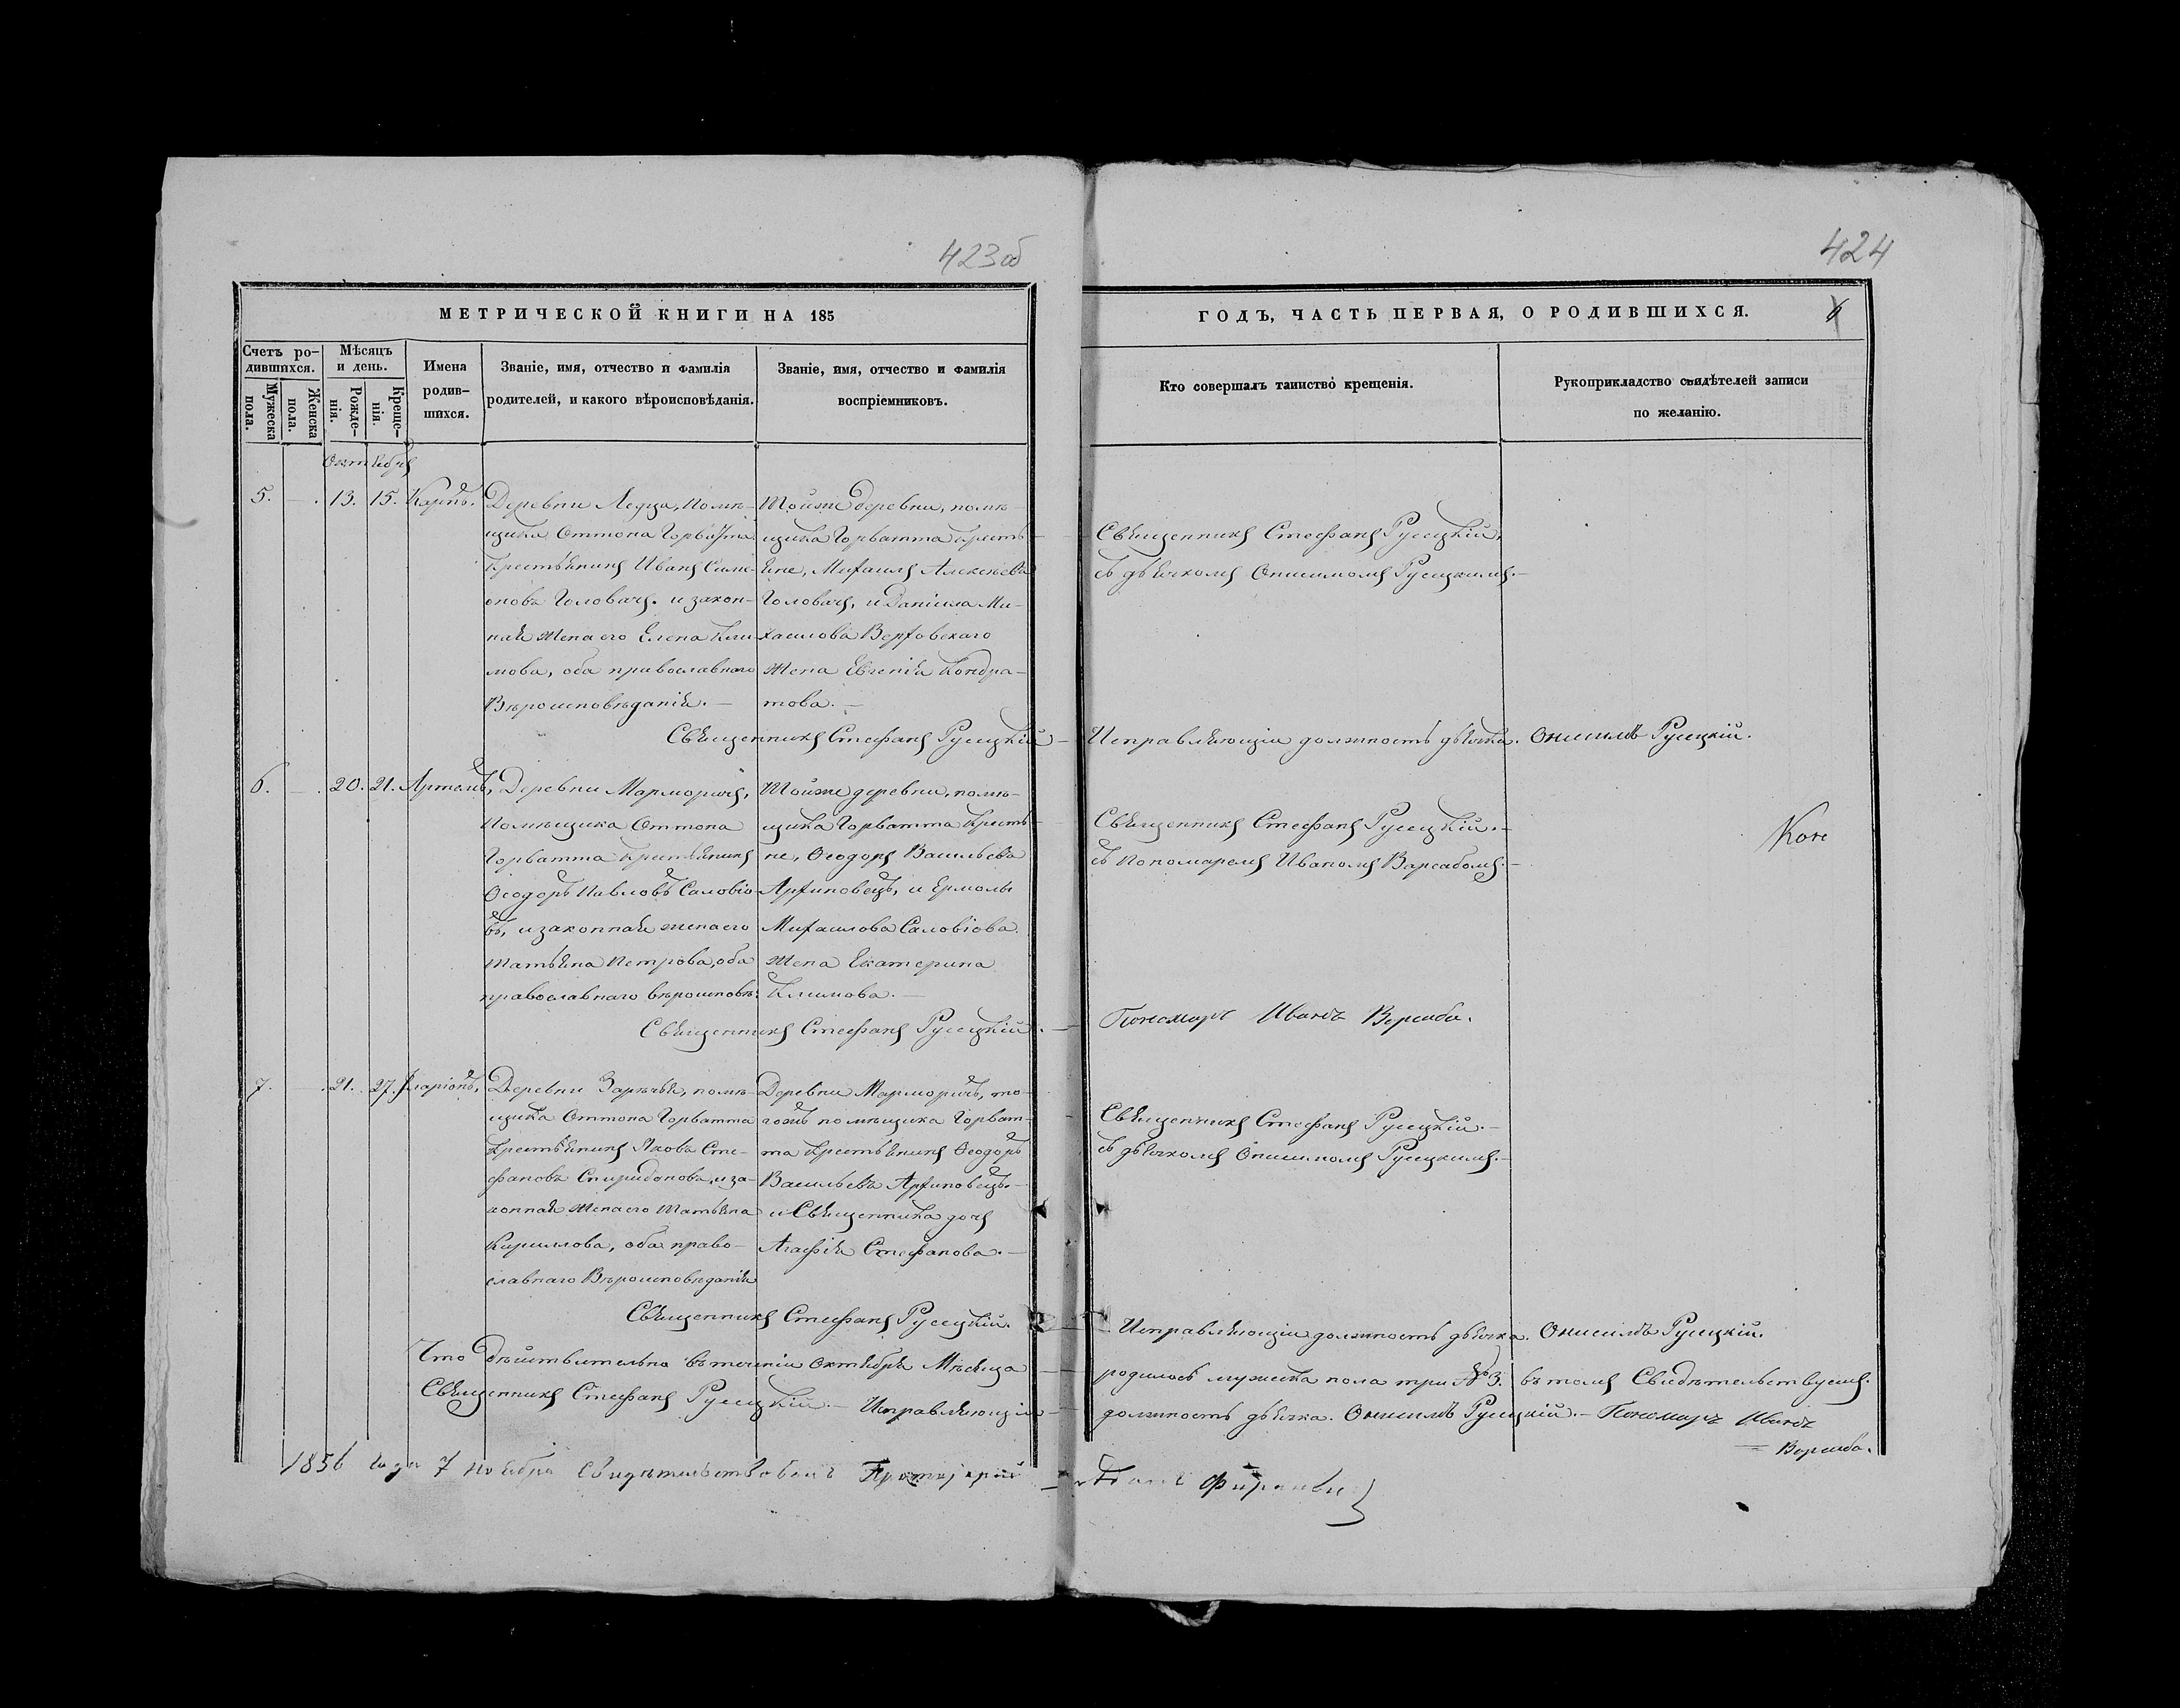 423об
424
МЕТРИЧЕСКОЙ КНИГИ НА 185
ГОДЪ, ЧАСТЬ ПЕРВАЯ, О РОДИВШИХСЯ.
Счетъ ро-
дившихся.
Мужеска
пола.
Женска
пола.
Мѣсяцъ
и день.
Рожде-
нія.
Креще-
нія.
Имена
родив-
шихся.
Званіе, имя, отчество и фамилія
родителей, и какого вѣроисповѣданія.
Званіе, имя, отчество и фамилія
воспріемниковъ.
Кто совершалъ таинство крещенія.
Рукоприкладство свидѣтелей записи
по желанію.
Октября
5. 13. 15. Карпъ.
Деревни Ледца, помѣ-
щика Оттона Горватта
крестьянинъ Иванъ Симе-
оновъ Головачъ. и закон-
ная жена его Елена Кли-
мова, оба православнаго
Вѣроисповѣданія.—
Тойже деревни, помѣ-
щика Горватта кресть-
яне, Михаилъ Алексѣевъ
Головачъ, и Даніила Ми-
хаилова Верховскаго
жена Евгенія Кондра-
това.—
Священникъ Стефанъ Русецкій,
съ дьячкомъ Онисимомъ Русецкимъ.—
Священникъ Стефанъ Русецкій—
Исправляющій должность дьячка. Онисимъ Русецкій.
6. 20. 21. Артемъ,
Деревни Марморичъ,
помѣщика Оттона
Горватта крестьянинъ
Ѳеодоръ Павловъ Саловіо-
въ, и законная жена его
Татьяна Петрова, оба
православнаго вѣроисповѣ:
Тойже деревни, помѣ-
щика Горватта кресть-
яне, Ѳеодоръ Васильевъ
Архиповецъ, и Ермолы
Михаилова Саловіова
жена Екатерина
Климова.—
Священникъ Стефанъ Русецкій.—
съ Пономаремъ Иваномъ Варсабомъ.—
Священникъ Стефанъ Русецкій.—
Пономарь Иванъ Версаба.
7. 21. 27. Иларіонъ,
Деревни Зарѣчья, помѣ-
щика Оттона Горватта
крестьянинъ Яковъ Сте-
фановъ Спиридоновъ, и за-
конная жена его Татьяна
Кириллова, оба право-
славнаго Вѣроисповѣданія
Деревни Марморичъ, то-
гожъ помѣщика Горват-
та крестьянинъ Ѳеодоръ
Васильевъ Архиповецъ.—
и Священника дочь
Агафія Стефанова.—
Священникъ Стефанъ Русецкій.—
съ дьячкомъ Онисимомъ Русецкимъ.—
Священникъ Стефанъ Русецкій.
Исправляющій должность дьячка. Онисимъ Русецкій.
Что дѣйствительно въ теченіи Октября Мѣсяца родилось мужеска пола три № 3. въ томъ Свидѣтельствуемъ.
Священникъ Стефанъ Русецкій.— Исправляющій должность дьячка. Онисимъ Русецкій.— Пономарь Иванъ
Версаба.
1856 года 7 ноября Свидѣтельствовалъ Протоіерей